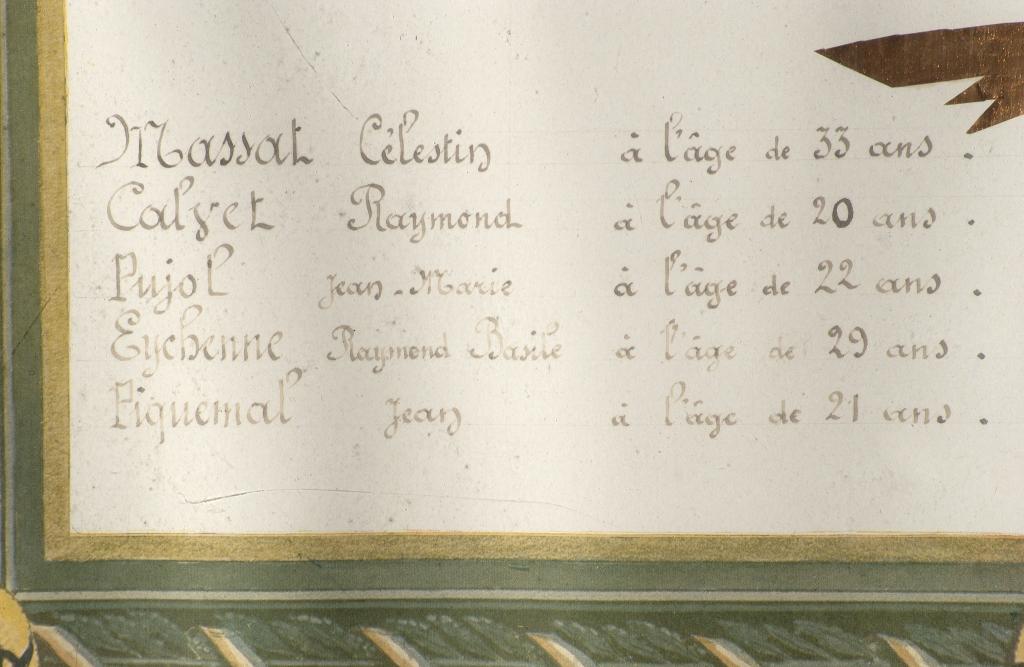 Massat Célestin à l'âge de 33 ans .
Calvet Raymond à l'âge de 20 ans .
Pujol Jean-Marie à l'âge de 22 ans .
Eychenne Raymond Basile à l'âge de 29 ans .
Piquemal Jean à l'âge de 21 ans .